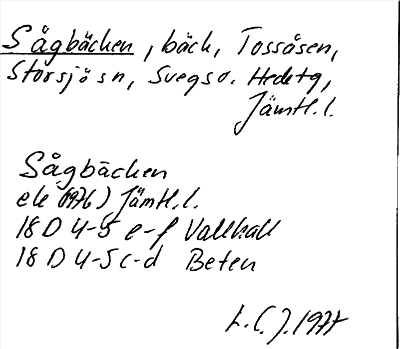 Sågbäcken, bäck, Tossåsen,
Storsjö sn, Svegs o. Hede tg,
Jämtl.l.
Sågbäcken
ek (1976) Jämtl.l.
18 D 4-5 e-f Vallhall
18 D 4-5 c-d Beten
L.C.J. 1977